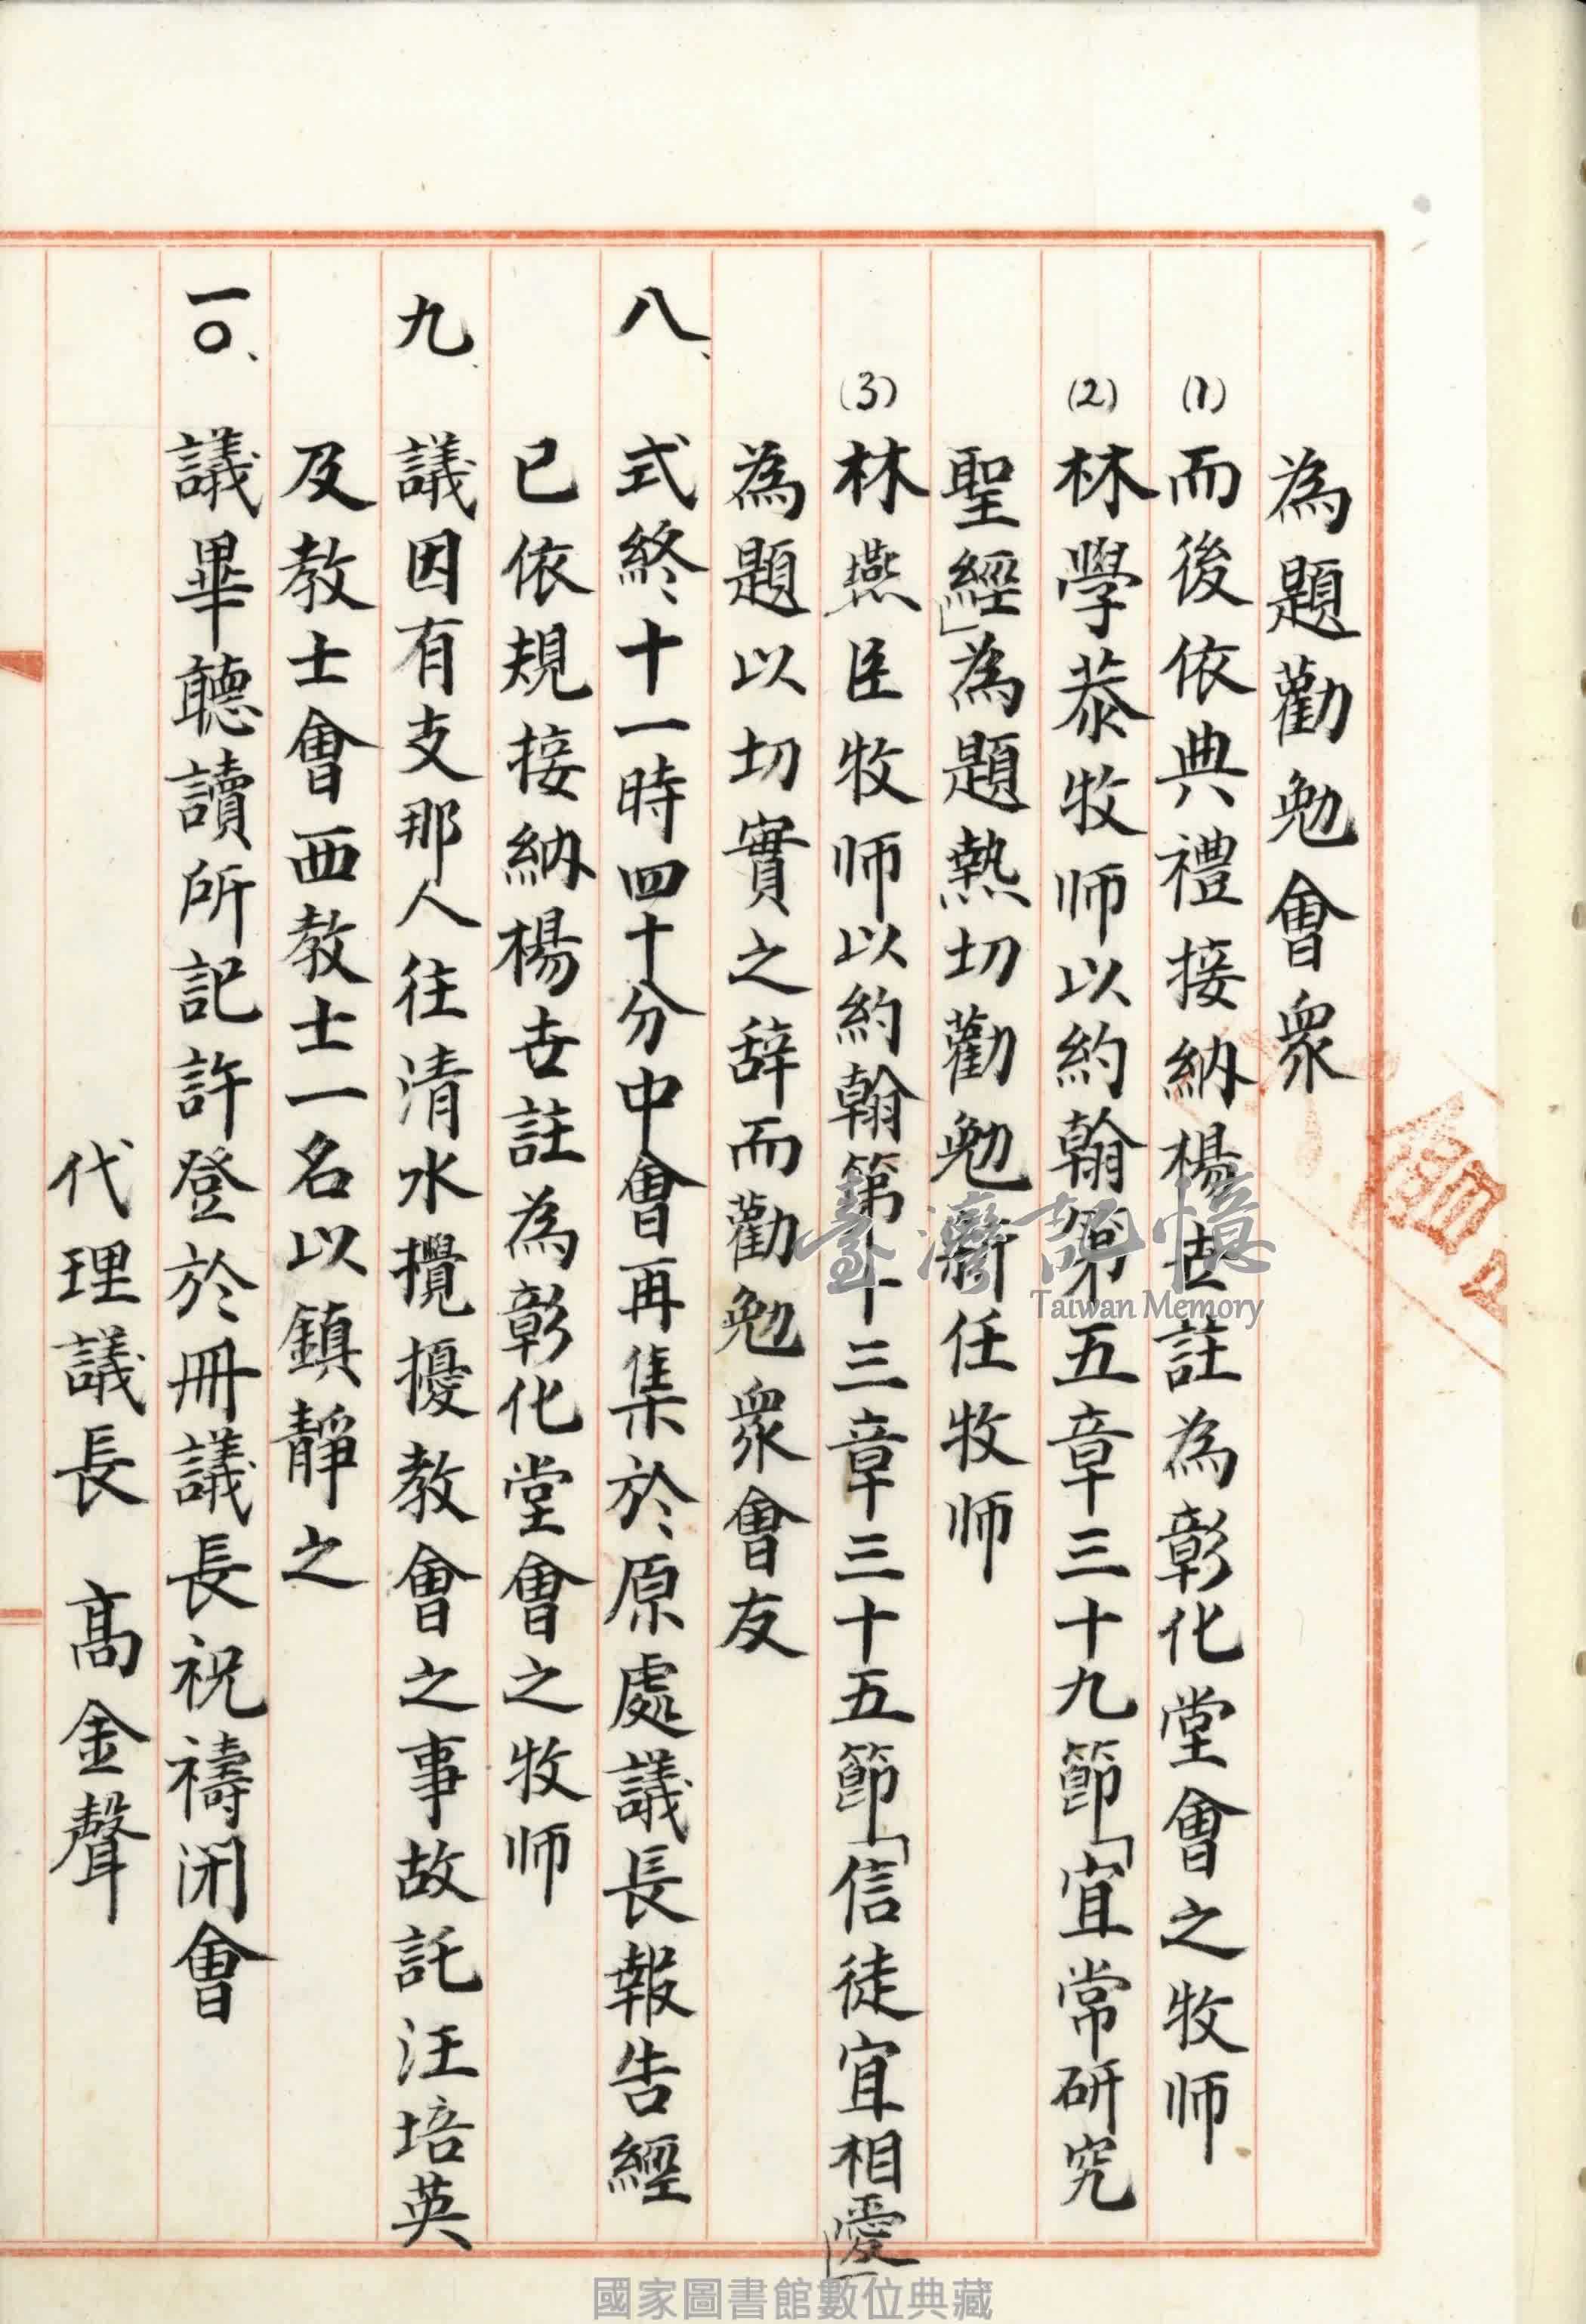 為題勸勉會衆
(1)而後依典禮接納楊世註為彰化堂會之牧师
(2)林學恭牧师以約翰第五章三十九節「宜常研究
聖經」為題熱切勸勉新任牧师
(3)林燕臣牧师以約翰第十三章三十五節「信徒宜相愛」
為題以切實之辞而勸勉衆會友
八、式終十一時四十分中會再集於原處議長報告經
已依規接納楊世註為彰化堂會之牧师
九、議因有支那人往清水攪擾教會之事故託汪培英
及教士會西教士一名以鎮靜之
一〇、議畢聽讀所記許登於冊議長祝禱闭會
代理議長 髙金聲
臺灣記憶
Taiwan Memory
國家圖書館數位典藏